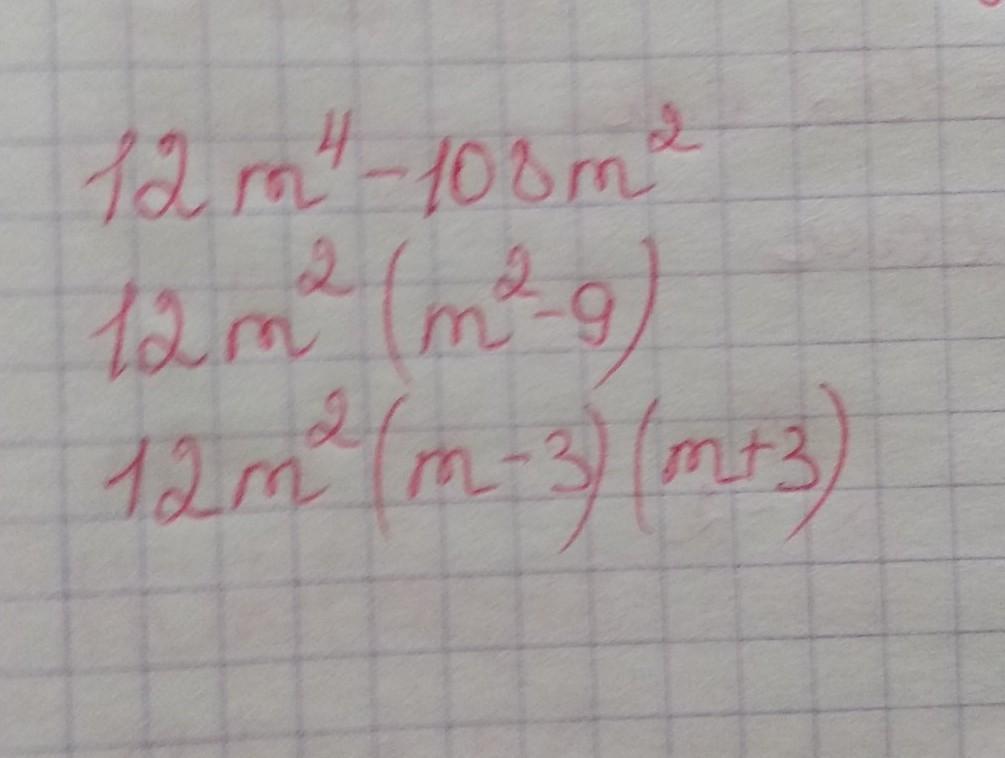 12m⁴-108m²
12m²(m²-9)
12m²(m-3)(m+3)